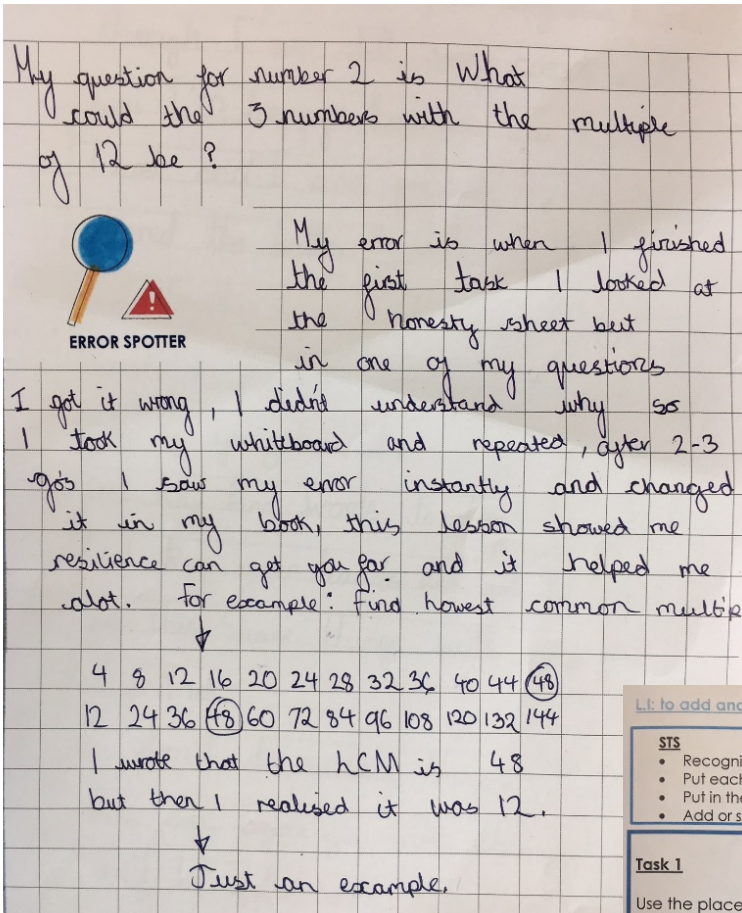 My question for number 2 is What
could the 3 numbers with the multiple
of 12 be ?
ERROR SPOTTER
My error is when I finished
the first task I looked at
the honesty sheet but
in one of my questions
I got it wrong, I didn't understand why so
I took my whiteboard and repeated, after 2-3
go's I saw my error instantly and changed
it in my book, this lesson showed me
resilience can get you far and it helped me
alot. For example: find lowest common multip
4 8 12 16 20 24 28 32 36 40 44 48
12 24 36 48 60 72 84 96 108 120 132 144
I wrote that the LCM is 48
but then I realised it was 12.
Just an example.
L.I: to add and
STS
• Recogni
• Put each
• Put in the
• Add or s
Task 1
Use the place